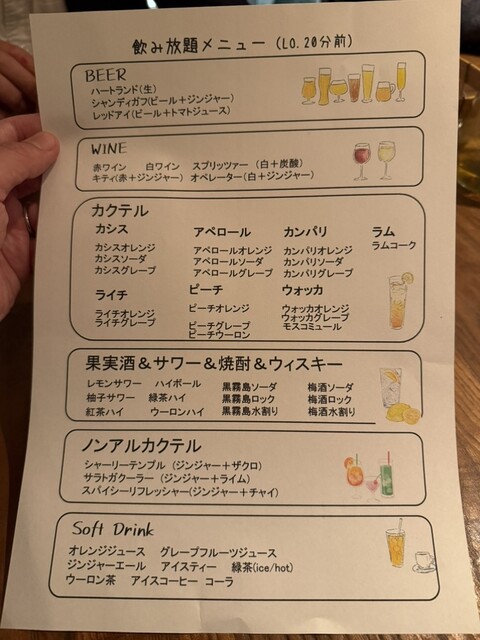 飲み放題メニュー (L.O.20分前)
BEER
ハートランド(生)
シャンディガフ(ビール+ジンジャー)
レッドアイ(ビール+トマトジュース)
WINE
赤ワイン 白ワイン スプリッツァー (白+炭酸)
キティ(赤+ジンジャー) オペレーター(白+ジンジャー)
カクテル
カシス アペロール カンパリ ラム
カシスオレンジ アペロールオレンジ カンパリオレンジ ラムコーク
カシスソーダ アペロールソーダ カンパリソーダ
カシスグレープ アペロールグレープ カンパリグレープ
ライチ ピーチ ウォッカ
ライチオレンジ ピーチオレンジ ウォッカオレンジ
ライチグレープ ピーチグレープ ウォッカグレープ
ピーチウーロン モスコミュール
果実酒&サワー&焼酎&ウィスキー
レモンサワー ハイボール 黒霧島ソーダ 梅酒ソーダ
柚子サワー 緑茶ハイ 黒霧島ロック 梅酒ロック
紅茶ハイ ウーロンハイ 黒霧島水割り 梅酒水割り
ノンアルカクテル
シャーリーテンプル (ジンジャー+ザクロ)
サラトガクーラー (ジンジャー+ライム)
スパイシーリフレッシャー(ジンジャー+チャイ)
Soft Drink
オレンジジュース グレープフルーツジュース
ジンジャーエール アイスティー 緑茶(ice/hot)
ウーロン茶 アイスコーヒー コーラ